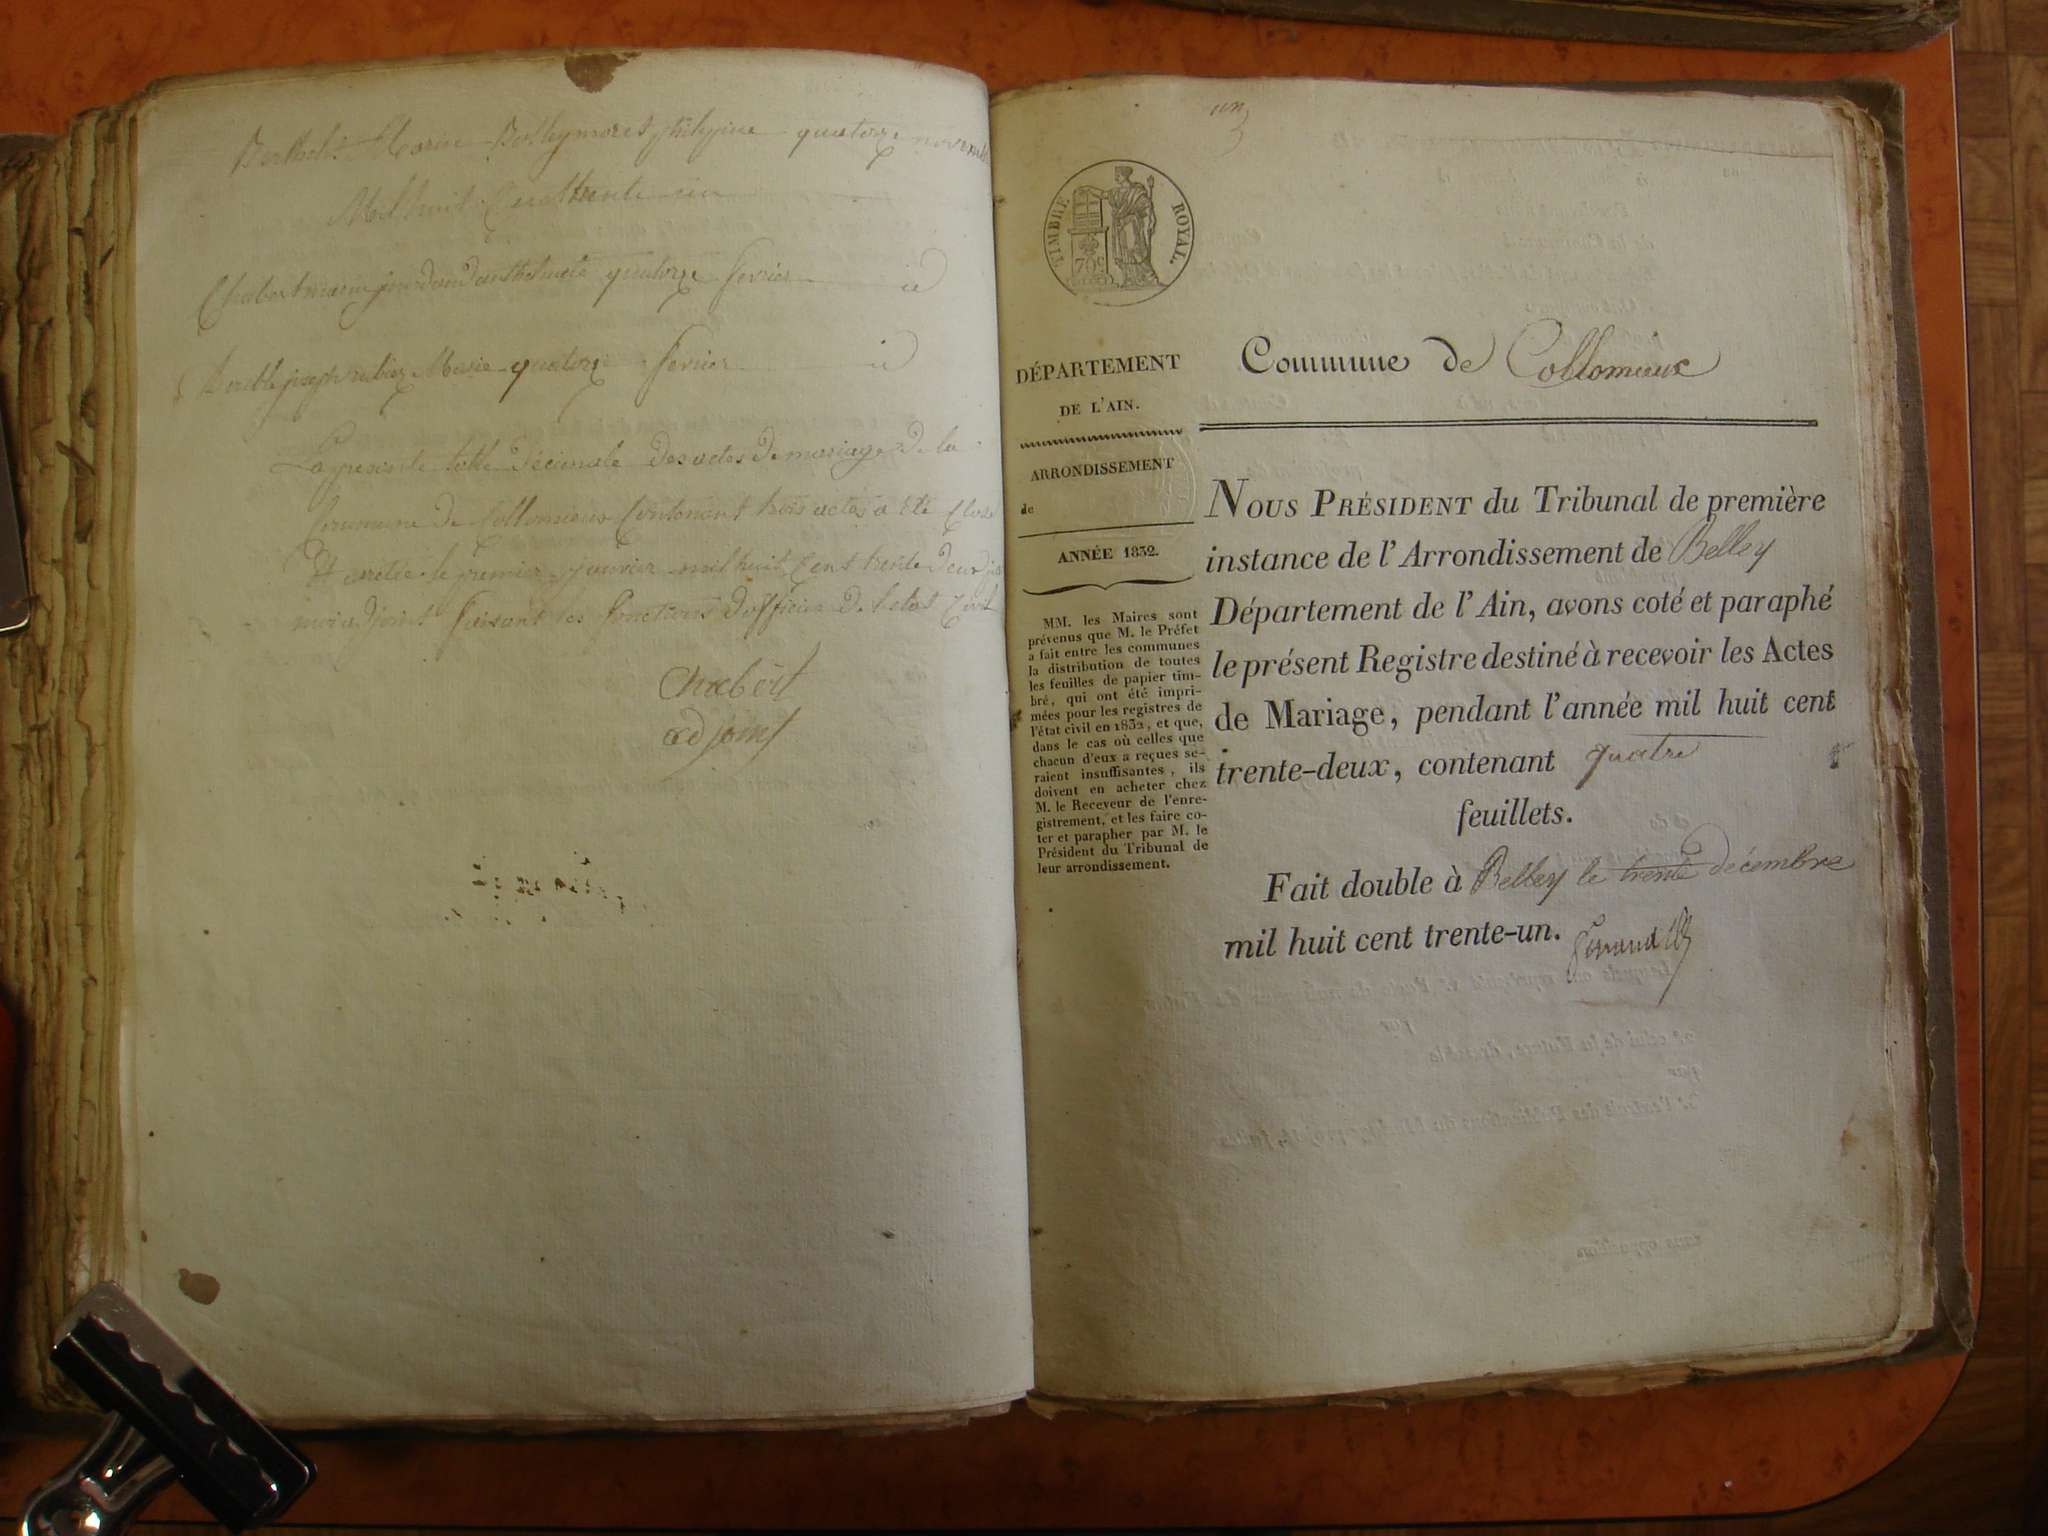 quatorze novembre
Mil huit Cent trente un
Chabert marie quatorze fevrier id
joseph Marie quatorze fevrier id
La presente table Décennale des actes De mariage De la
Commune de Collomieux Contenant trois actes a été Close
Et arretée le premier janvier mil huit Cent trente Deux par
moi adjoint faisant les fonctions D'officier De l'etat Civil
Chabert
adjoint
un
TIMBRE ROYAL.
70 c
DÉPARTEMENT
DE L'AIN.
ARRONDISSEMENT
de
ANNÉE 1832.
MM. les Maires sont
prévenus que M. le Préfet
a fait entre les communes
la distribution de toutes
les feuilles de papier tim-
bré, qui ont été impri-
mées pour les registres de
l'état civil en 1832, et que,
dans le cas où celles que
chacun d'eux a reçues se-
raient insuffisantes, ils
doivent en acheter chez
M. le Receveur de l'enre-
gistrement, et les faire co-
ter et parapher par M. le
Président du Tribunal de
leur arrondissement.
Commune de Collomieux
NOUS PRÉSIDENT du Tribunal de première
instance de l'Arrondissement de Belley
Département de l'Ain, avons coté et paraphé
le présent Registre destiné à recevoir les Actes
de Mariage, pendant l'année mil huit cent
trente-deux, contenant quatre
feuillets.
Fait double à Belley le trente décembre
mil huit cent trente-un.